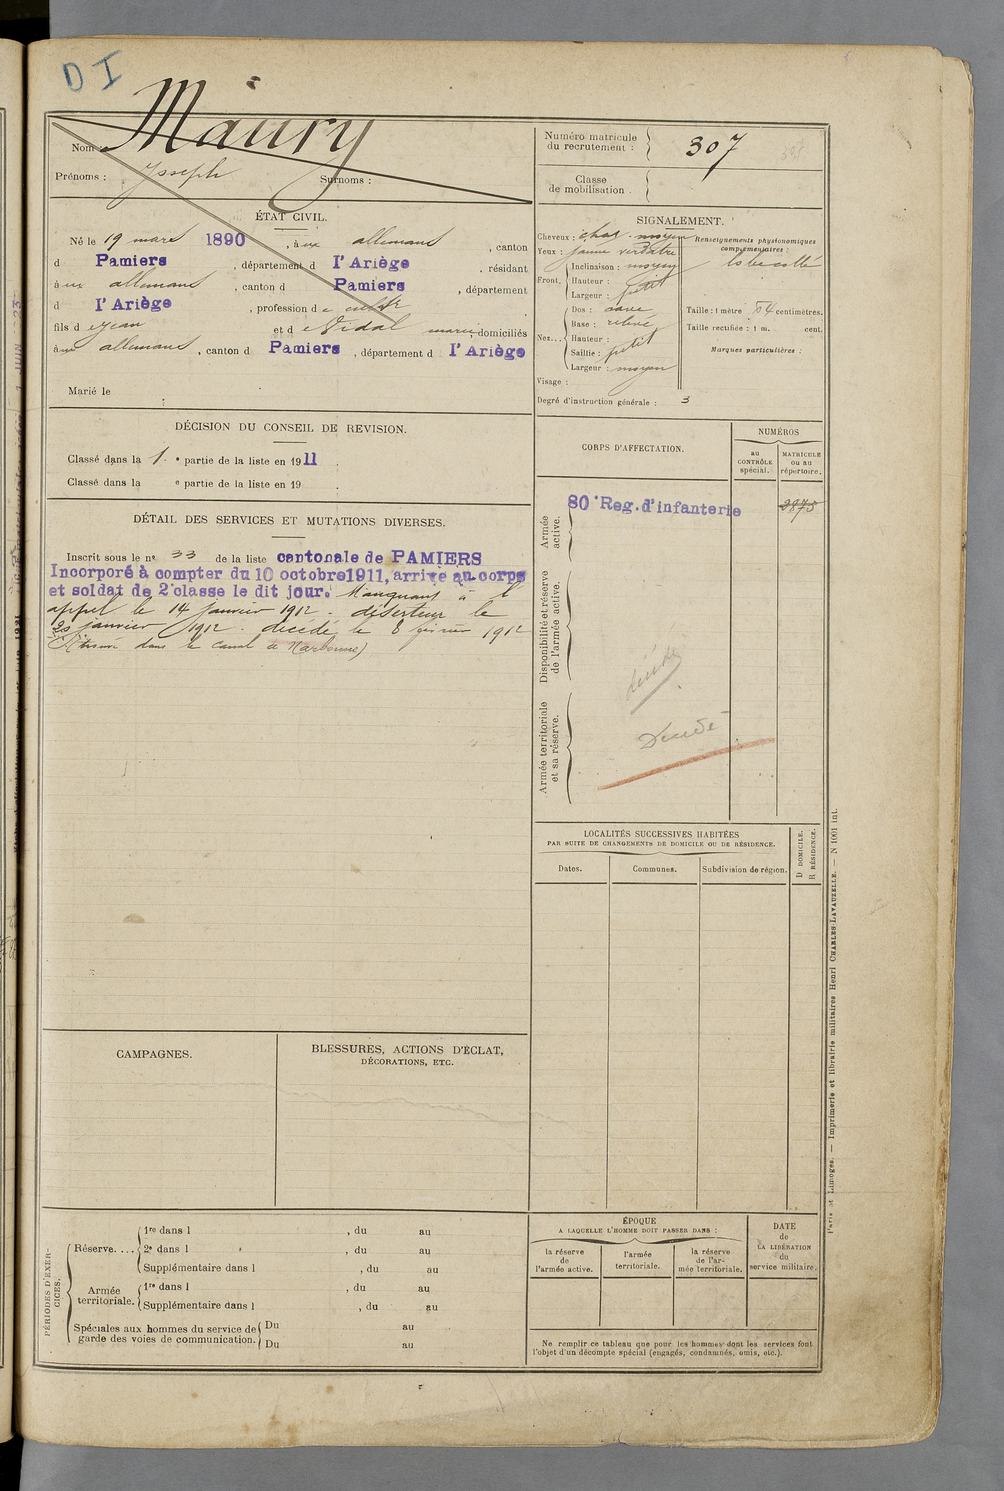 DI
Nom : Maury
Prénoms : Joseph Surnoms :
ÉTAT CIVIL.
Né le 19 mars 1890, à ux allemans, canton
d Pamiers, département d l'Ariège, résidant
à ux allemans, canton d Pamiers, département
d l'Ariège, profession de cultr
fils d e Jean et d e Vidal marie, domiciliés
à ux allemans, canton d Pamiers, département d l'Ariège
Marié le
DÉCISION DU CONSEIL DE REVISION.
Classé dans la 1. e partie de la liste en 1911.
Classé dans la e partie de la liste en 19 .
DÉTAIL DES SERVICES ET MUTATIONS DIVERSES.
Inscrit sous le no 33 de la liste cantonale de PAMIERS
Incorporé à compter du 10 octobre 1911, arrivé au corps
et soldat de 2e classe le dit jour. Manquant à l'
appel le 14 janvier 1912. déserteur le
20 janvier 1912. décédé le 8 février 1912
(trouvé dans le canal à Narbonne)
CAMPAGNES.
BLESSURES, ACTIONS D'ÉCLAT,
DÉCORATIONS, ETC.
PÉRIODES D'EXER-
CICES.
Réserve....
1re dans l , du au
2e dans l , du au
Supplémentaire dans l , du au
Armée
territoriale.
1re dans l , du au
Supplémentaire dans l , du au
Spéciales aux hommes du service de
garde des voies de communication.
Du au
Du au
Numéro matricule
du recrutement : 307
Classe
de mobilisation .
SIGNALEMENT.
Cheveux : chat. moyen
Yeux : jaune verdâtre
Front.
Inclinaison : moyen
Hauteur : petit
Largeur :
Nez...
Dos : cave
Base : relevé
Hauteur :
Saillie : petit
Largeur : moyen
Visage :
Renseignements physionomiques
complémentaires :
lobe collé
Taille : 1 mètre 54 centimètres.
Taille rectifiée : 1 m. cent.
Marques particulières :
Degré d'instruction générale : 3
CORPS D'AFFECTATION.
NUMÉROS
au
CONTRÔLE
spécial.
MATRICULE
ou au
répertoire.
Armée
active.
80e Reg. d'infanterie 2875
Disponibilité et réserve
de l'armée active.
décédé
Armée territoriale
et sa réserve.
Décédé
LOCALITÉS SUCCESSIVES HABITÉES
PAR SUITE DE CHANGEMENTS DE DOMICILE OU DE RÉSIDENCE.
Dates. Communes. Subdivision de région.
D DOMICILE.
R RÉSIDENCE.
ÉPOQUE
A LAQUELLE L'HOMME DOIT PASSER DANS :
la réserve
de
l'armée active.
l'armée
territoriale.
la réserve
de l'ar-
mée territoriale.
DATE
de
LA LIBÉRATION
du
service militaire.
Ne remplir ce tableau que pour les hommes dont les services font
l'objet d'un décompte spécial (engagés, condamnés, omis, etc.).
Paris et Limoges. — Imprimerie et librairie militaires Henri CHARLES-LAVAUZELLE. — N 1001 int.